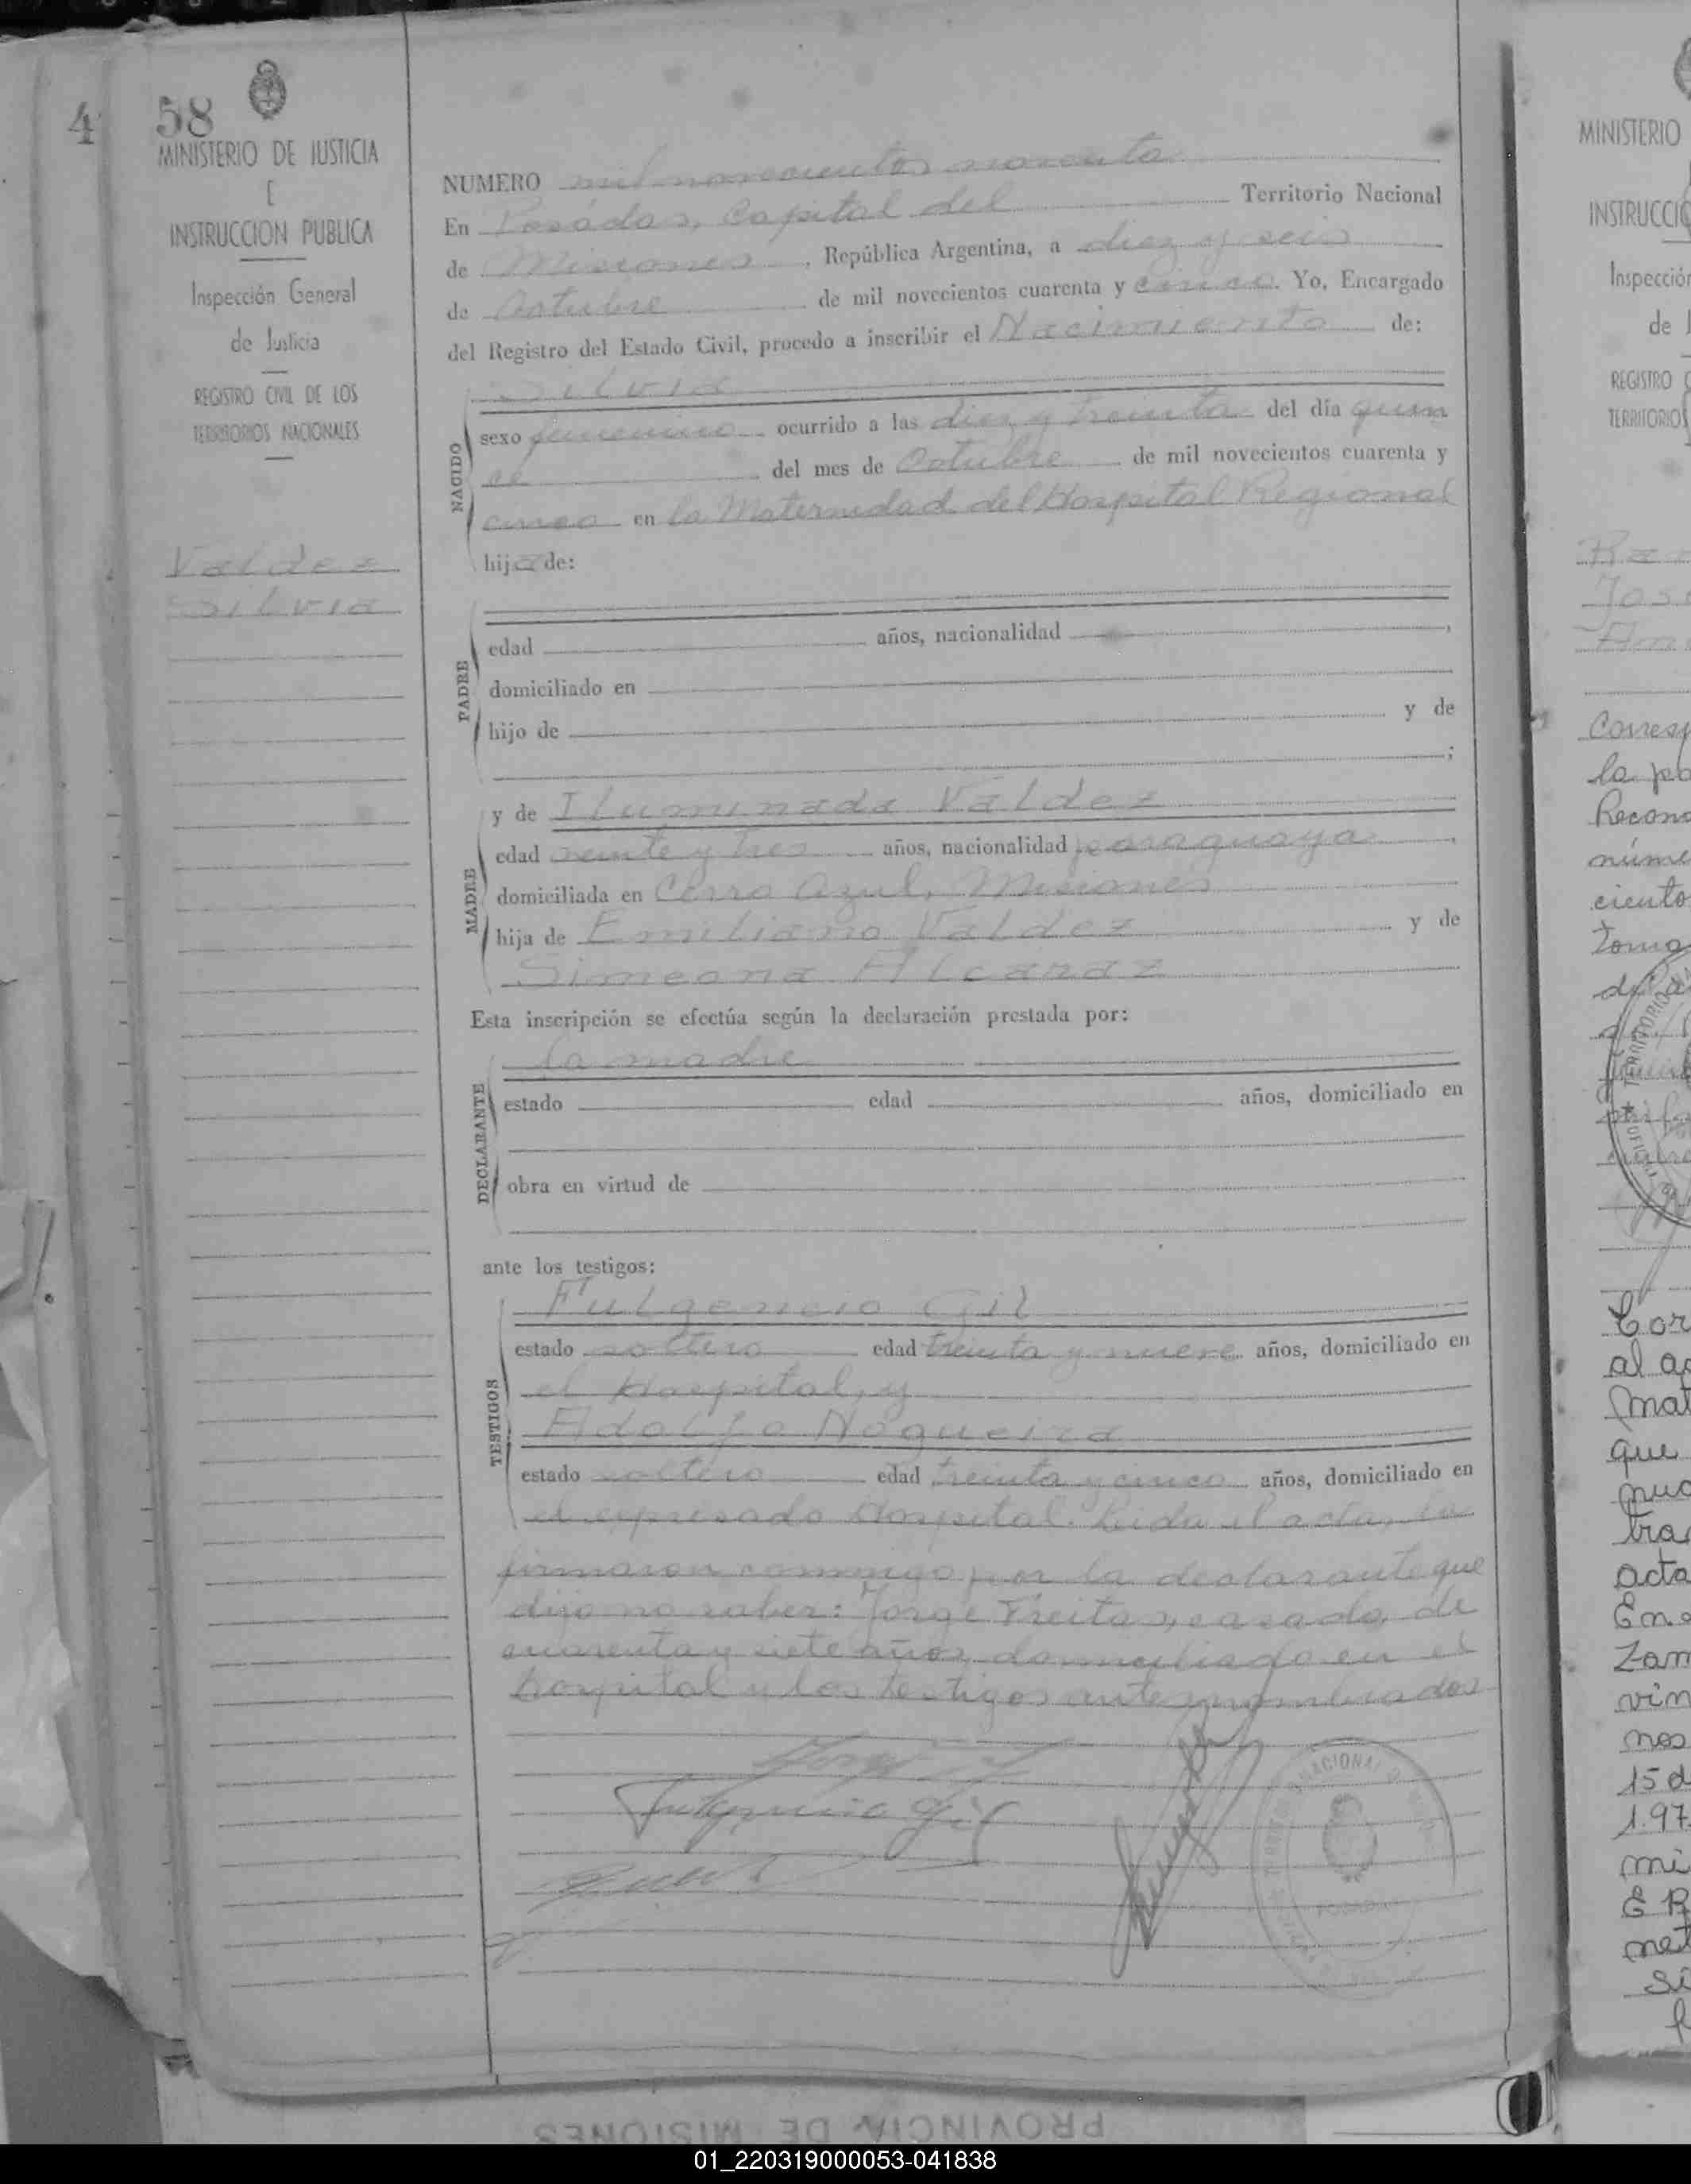 4
58
MINISTERIO DE JUSTICIA
E
INSTRUCCION PUBLICA
Inspección General
de Justicia
REGISTRO CIVIL DE LOS
TERRITORIOS NACIONALES
Valdez
Silvia
NUMERO mil novecientos noventa
En Posadas, Capital del Territorio Nacional
de Misiones, República Argentina, a diez y seis
de Octubre de mil novecientos cuarenta y cinco. Yo, Encargado
del Registro del Estado Civil, procedo a inscribir el Nacimiento de:
Silvia
NACIDO
sexo femenino ocurrido a las diez y treinta del día quin
ce del mes de Octubre de mil novecientos cuarenta y
cinco en la Maternidad del Hospital Regional
hija de:
PADRE
edad años, nacionalidad ,
domiciliado en
hijo de y de
;
y de Iluminada Valdez
MADRE
edad veinte y tres años, nacionalidad paraguaya ,
domiciliada en Cerro Azul, Misiones
hija de Emiliano Valdez y de
Simeona Alcaraz
Esta inscripción se efectúa según la declaración prestada por:
la madre
DECLARANTE
estado edad años, domiciliado en
obra en virtud de
ante los testigos:
Fulgencio Gil
TESTIGOS
estado soltero edad treinta y nueve años, domiciliado en
el Hospital, y
Adolfo Nogueira
estado soltero edad treinta y cinco años, domiciliado en
el expresado Hospital. Leida el acta, la
firmaron conmigo por la declarante que
dijo no saber: Jorge Freitas, casado, de
cuarenta y siete años, domiciliado en el
hospital y los testigos antes nombrados
Fulgencio Gil
MINISTERIO
INSTRUCCIO
Inspección
de J
REGISTRO C
TERRITORIOS
Jos
Corresp
la pa
Recono
núme
ciento
toma
Cor
al ac
mat
que
tra
acta
En
Zam
vin
nos
15 d
1.97
mi
PROVINCIA DE MISIONES
01_220319000053-041838